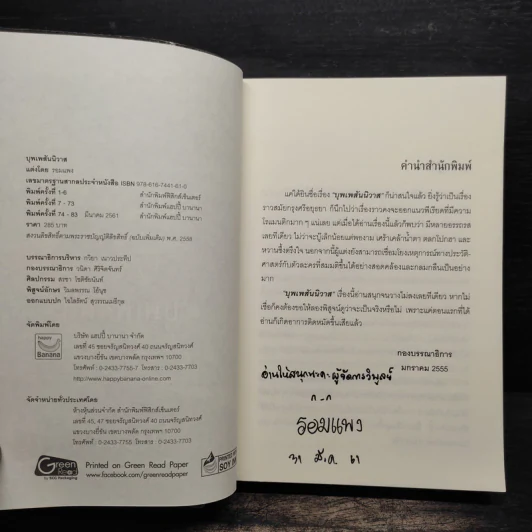 บุพเพสันนิวาส
แต่งโดย รอมแพง
เลขมาตรฐานสากลประจำหนังสือ ISBN 978-616-7441-61-0
พิมพ์ครั้งที่ 1-6 สำนักพิมพ์ฟิสิกส์เซ็นเตอร์
พิมพ์ครั้งที่ 7 - 73 สำนักพิมพ์แฮปปี้ บานานา
พิมพ์ครั้งที่ 74 - 83 มีนาคม 2561 สำนักพิมพ์แฮปปี้ บานานา
ราคา 385 บาท
สงวนลิขสิทธิ์ตามพระราชบัญญัติลิขสิทธิ์ (ฉบับเพิ่มเติม) พ.ศ. 2558
บรรณาธิการบริหาร
กองบรรณาธิการ
ศิลปกรรม
พิสูจน์อักษร
ออกแบบปก
จัดพิมพ์โดย
happy Banana
บริษัท แฮปปี้ บานานา จำกัด
เลขที่ 45 ซอยจรัญสนิทวงศ์ 40 ถนนจรัญสนิทวงศ์
แขวงบางยี่ขัน เขตบางพลัด กรุงเทพฯ 10700
โทรศัพท์ : 0-2433-7755-7 โทรสาร : 0-2433-3052
http://www.happybanana-online.com
จัดจำหน่ายทั่วประเทศโดย
ห้างหุ้นส่วนจำกัด สำนักพิมพ์ฟิสิกส์เซ็นเตอร์
เลขที่ 45, 47 ซอยจรัญสนิทวงศ์ 40 ถนนจรัญสนิทวงศ์
แขวงบางยี่ขัน เขตบางพลัด กรุงเทพฯ 10700
โทรศัพท์ : 0-2433-7755 โทรสาร : 0-2433-3052
Green Read by SCG Packaging
Printed on Green Read Paper
www.facebook.com/greenreadpaper
PRINTED WITH SOY INK
คำนำสำนักพิมพ์
แค่ได้ยินชื่อเรื่อง "บุพเพสันนิวาส" ก็น่าสนใจแล้ว ยิ่งรู้ว่าเป็นเรื่อง
ราวสมัยกรุงศรีอยุธยา ก็นึกไปว่าเรื่องราวคงจะออกแนวพีเรียดที่มีความ
โรแมนติกมาก ๆ แน่เลย แต่เมื่อได้อ่านเรื่องนี้แล้วก็พบว่า มีหลายอรรถรส
เลยทีเดียว ไม่ว่าจะบู๊เล็กน้อยแต่พองาม เคร้าเคล้าน้ำตา ตลกโปกฮา และ
หวานซึ้งตรึงใจ นอกจากนี้ผู้แต่งยังสามารถเชื่อมโยงเหตุการณ์ทางประวัติ-
ศาสตร์กับตัวละครที่สมมติขึ้นได้อย่างสอดคล้องและกลมกลืนเป็นอย่าง
มาก
"บุพเพสันนิวาส" เรื่องนี้อ่านสนุกจนวางไม่ลงเลยทีเดียว หากไม่
เชื่อก็คงต้องขอให้ลองพิสูจน์ดูว่าจะเป็นจริงหรือไม่ เพราะแค่ตอนแรกที่ได้
อ่านก็เกิดอาการติดหนึบขึ้นเสียแล้ว
กองบรรณาธิการ
มกราคม 2555
อ่านให้สนุกนะคะ ผู้จัดการวิฑูลย์
รอมแพง
31 มี.ค. 61